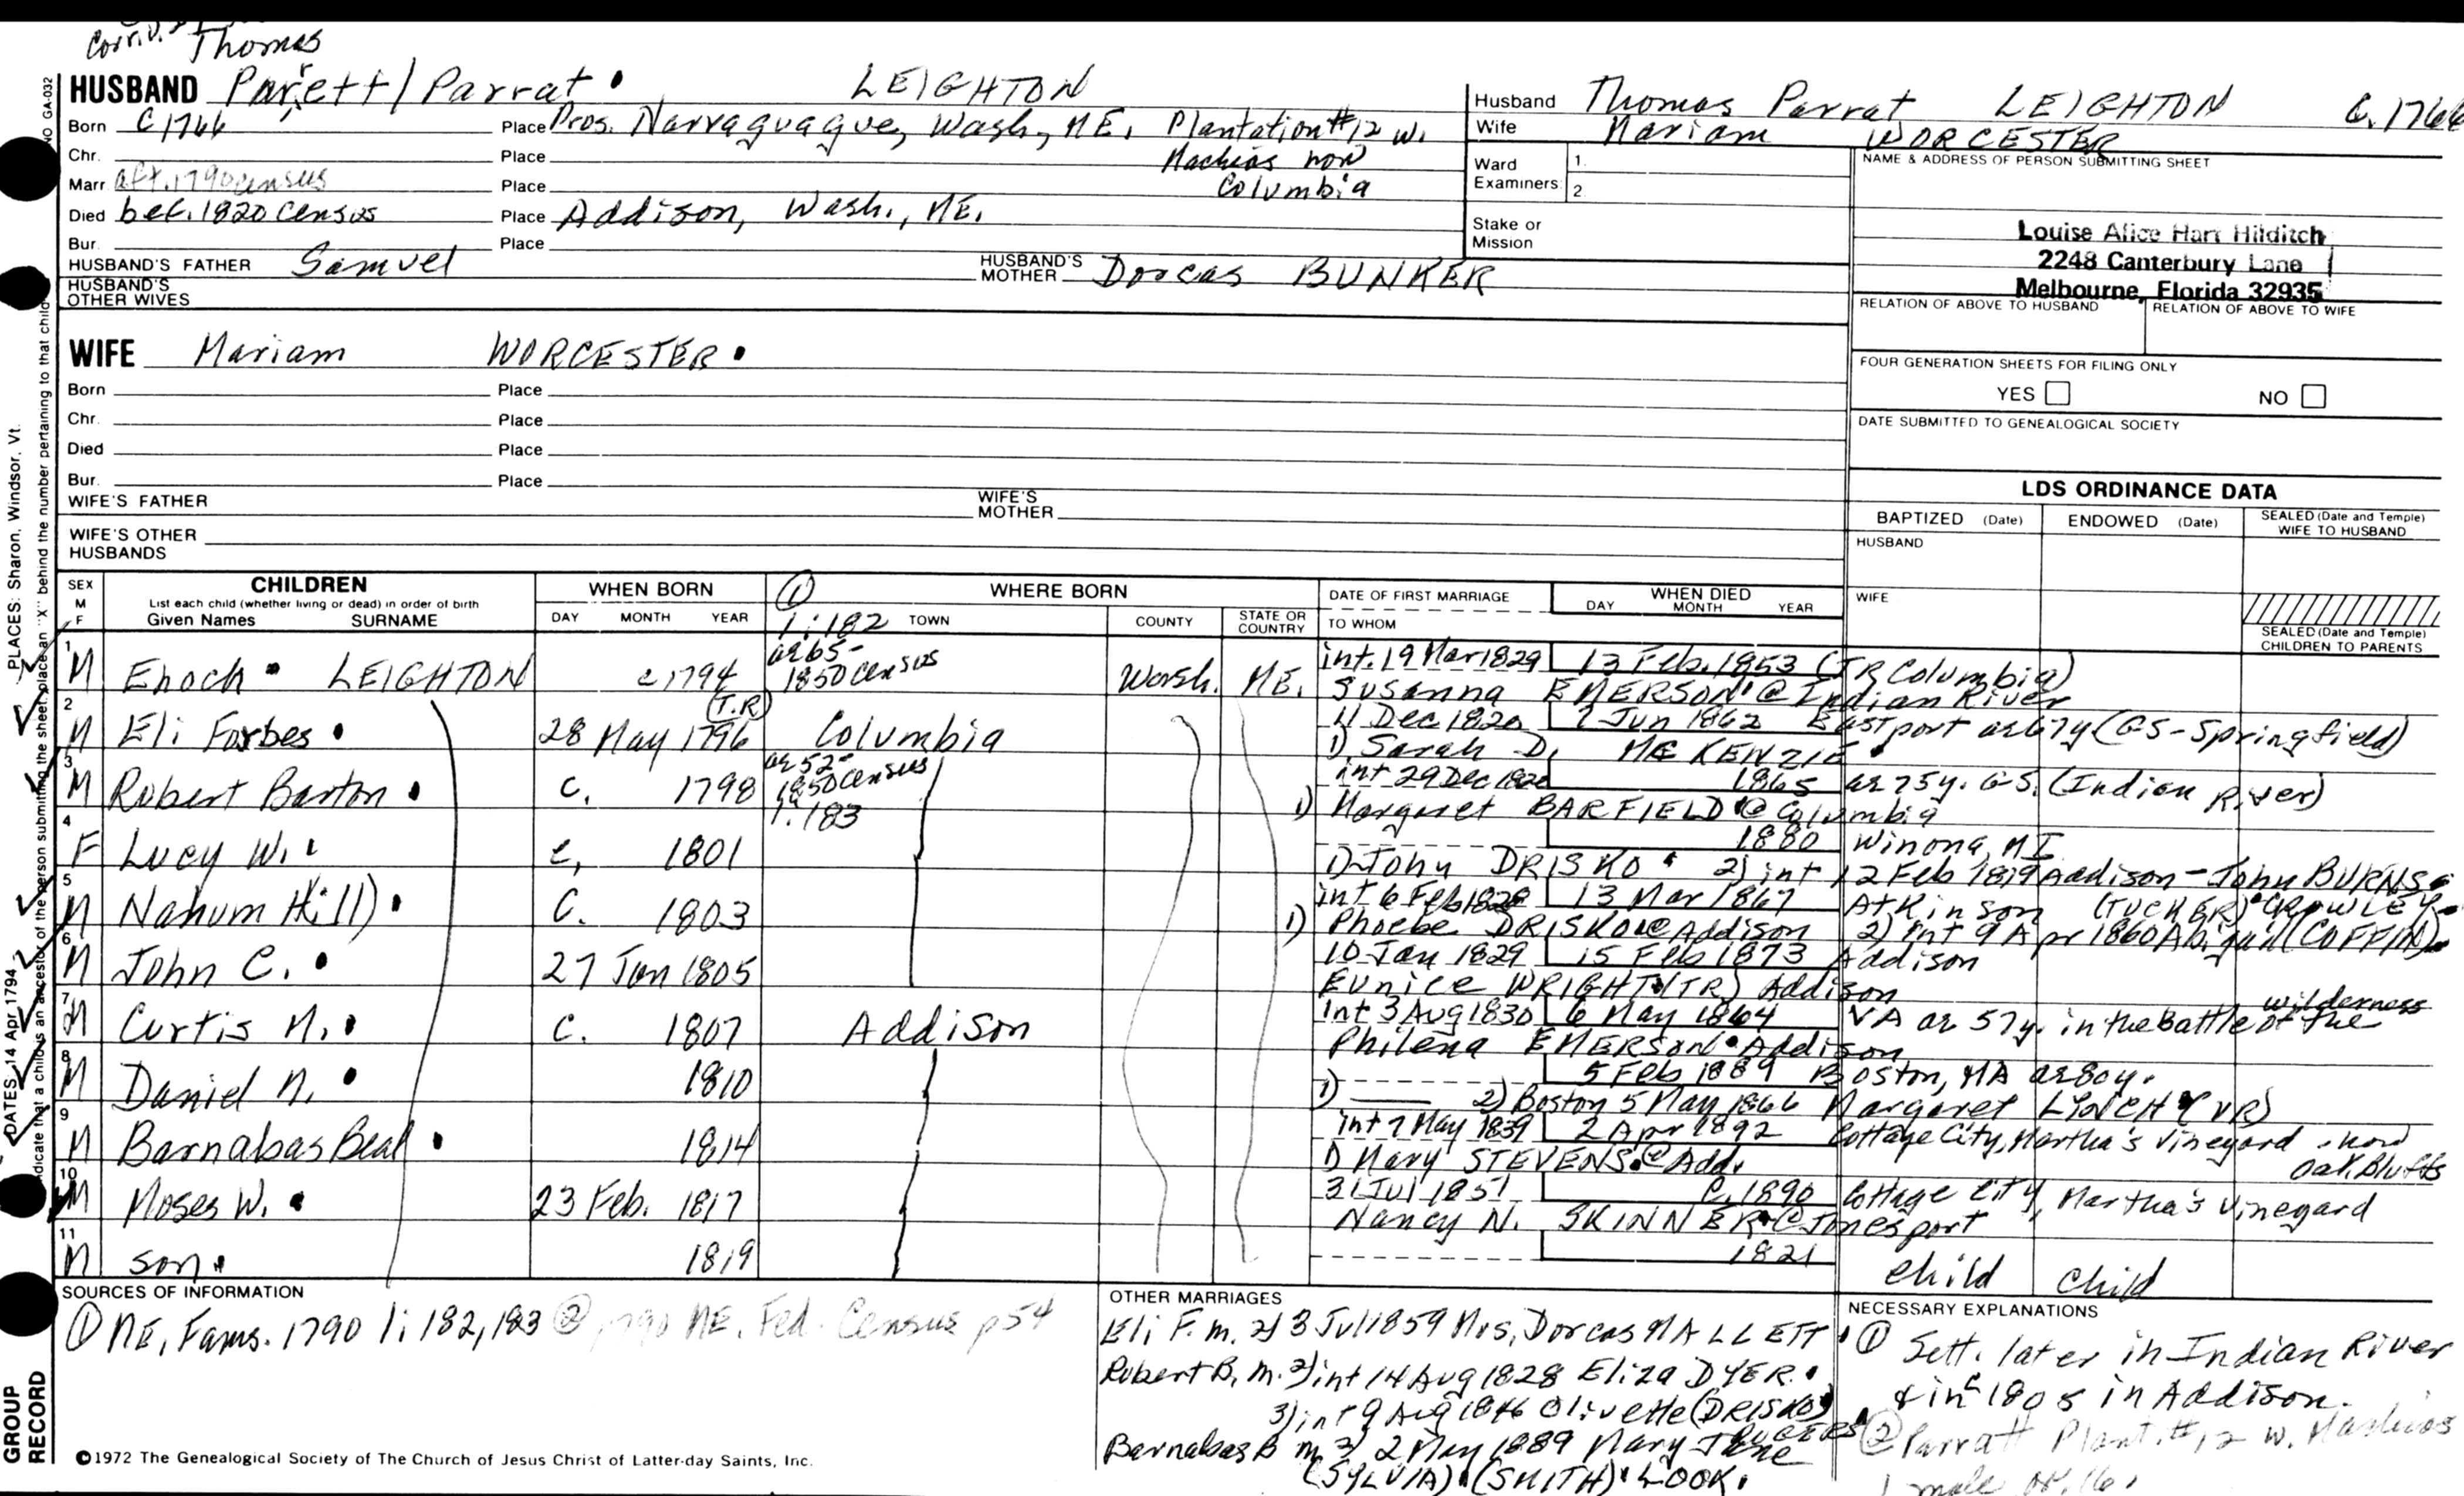 Corr. V.S. Thomas
NO GA-032
HUSBAND Parett/Parrat LEIGHTON
Born c 1766 Place Pros. Narraguague, Wash., ME. Plantation #12 W.
Chr. Place Machias now
Marr. aft. 1790 census Place Columbia
Died bef. 1820 Census Place Addison, Wash., ME.
Bur. Place
HUSBAND'S FATHER Samuel HUSBAND'S MOTHER Dorcas BUNKER
HUSBAND'S OTHER WIVES
Husband Thomas Parrat LEIGHTON C. 1766
Wife Mariam WORCESTER
Ward Examiners 1.
2.
Stake or Mission
NAME & ADDRESS OF PERSON SUBMITTING SHEET
Louise Alice Harr Hilditch
2248 Canterbury Lane
Melbourne, Florida 32935
RELATION OF ABOVE TO HUSBAND RELATION OF ABOVE TO WIFE
FOUR GENERATION SHEETS FOR FILING ONLY
YES NO
DATE SUBMITTED TO GENEALOGICAL SOCIETY
WIFE Mariam WORCESTER
Born Place
Chr. Place
Died Place
Bur. Place
WIFE'S FATHER WIFE'S MOTHER
WIFE'S OTHER HUSBANDS
LDS ORDINANCE DATA
BAPTIZED (Date) ENDOWED (Date) SEALED (Date and Temple) WIFE TO HUSBAND
HUSBAND
WIFE
SEALED (Date and Temple) CHILDREN TO PARENTS
SEX M F CHILDREN WHEN BORN ① WHERE BORN DATE OF FIRST MARRIAGE WHEN DIED
List each child (whether living or dead) in order of birth
Given Names SURNAME DAY MONTH YEAR 1:182 TOWN COUNTY STATE OR COUNTRY TO WHOM DAY MONTH YEAR
1 M Enoch LEIGHTON c 1794 ae 65- 1850 census Wash. ME. int. 19 Mar 1829 13 Feb. 1853 (TR Columbia)
Susanna EMERSON @ Indian River
2 M Eli Forbes 28 May 1796 (T.R) Columbia 11 Dec 1820 2 Jun 1862 Eastport ae 67y (GS-Springfield)
1) Sarah D. MC KENZIE
3 M Robert Barton c. 1798 ae 52- 1850 census 1:183 int 29 Dec 1820 1865 ae 75y. G.S. (Indian River)
1) Margaret BARFIELD @ Columbia
4 F Lucy W. c, 1801 1880 Winona, MI
1) John DRISKO 2) int 12 Feb 1819 Addison - John BURNS
5 M Nahum H(ill) C. 1803 int 6 Feb 1828 13 Mar 1867 Atkinson (TUCKER) CROWLEY
1) Phoebe DRISKO @ Addison 2) int 9 Apr 1860 Abigail (COFFIN)
6 M John C. 27 Jan 1805 10 Jan 1829 15 Feb 1873 Addison
Eunice WRIGHT (TR) Addison
7 M Curtis M. c. 1807 Addison Int 3 Aug 1830 6 May 1864 VA ae 57y. in the Battle of the wilderness
Philena EMERSON Addison
8 M Daniel N. 1810 5 Feb 1889 Boston, MA ae 80y.
1) 2) Boston 5 May 1866 Margaret LYNCH (VR)
9 M Barnabas Beal 1814 int 7 May 1839 2 Apr 1892 Cottage City, Martha's Vineyard - now Oak Bluffs
1) Mary STEVENS @ Add.
10 M Moses W. 23 Feb. 1817 31 Jul 1851 c. 1890 Cottage City, Martha's Vinegard
Nancy N. SKINNER @ Jonesport
11 M son 1819 1821 child child
SOURCES OF INFORMATION
① ME, Fams. 1790 1:182,183 ② 1790 ME. Fed. Census p54
OTHER MARRIAGES
Eli F. m. 2) 3 Jul 1859 Mrs. Dorcas MALLETT
Robert B. m. 2) int 14 Aug 1828 Eliza DYER.
3) int 9 Aug 1846 Olivette (DRISKO)
Barnabas B m 2) 2 May 1889 Mary Jane
(SYLVIA) (SMITH) LOOK.
NECESSARY EXPLANATIONS
① Sett. later in Indian River
& in c 1805 in Addison.
② Parratt Plant. #12 W. Machias
1 male ov. 16.
©1972 The Genealogical Society of The Church of Jesus Christ of Latter-day Saints, Inc.
GROUP RECORD
DATES: 14 Apr 1794 PLACES: Sharon, Windsor, Vt.
indicate that a child is an ancestor of the person submitting the sheet, place an "X" behind the number pertaining to that child